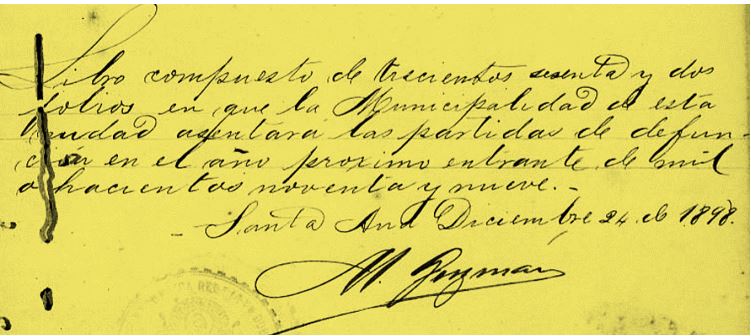 Libro compuesto de trescientos sesenta y dos
folios en que la Municipalidad de esta
ciudad asentará las partidas de defun-
ción en el año proximo entrante de mil
ochocientos noventa y nueve.-
- Santa Ana Diciembre 24 de 1898.
M. Guzman